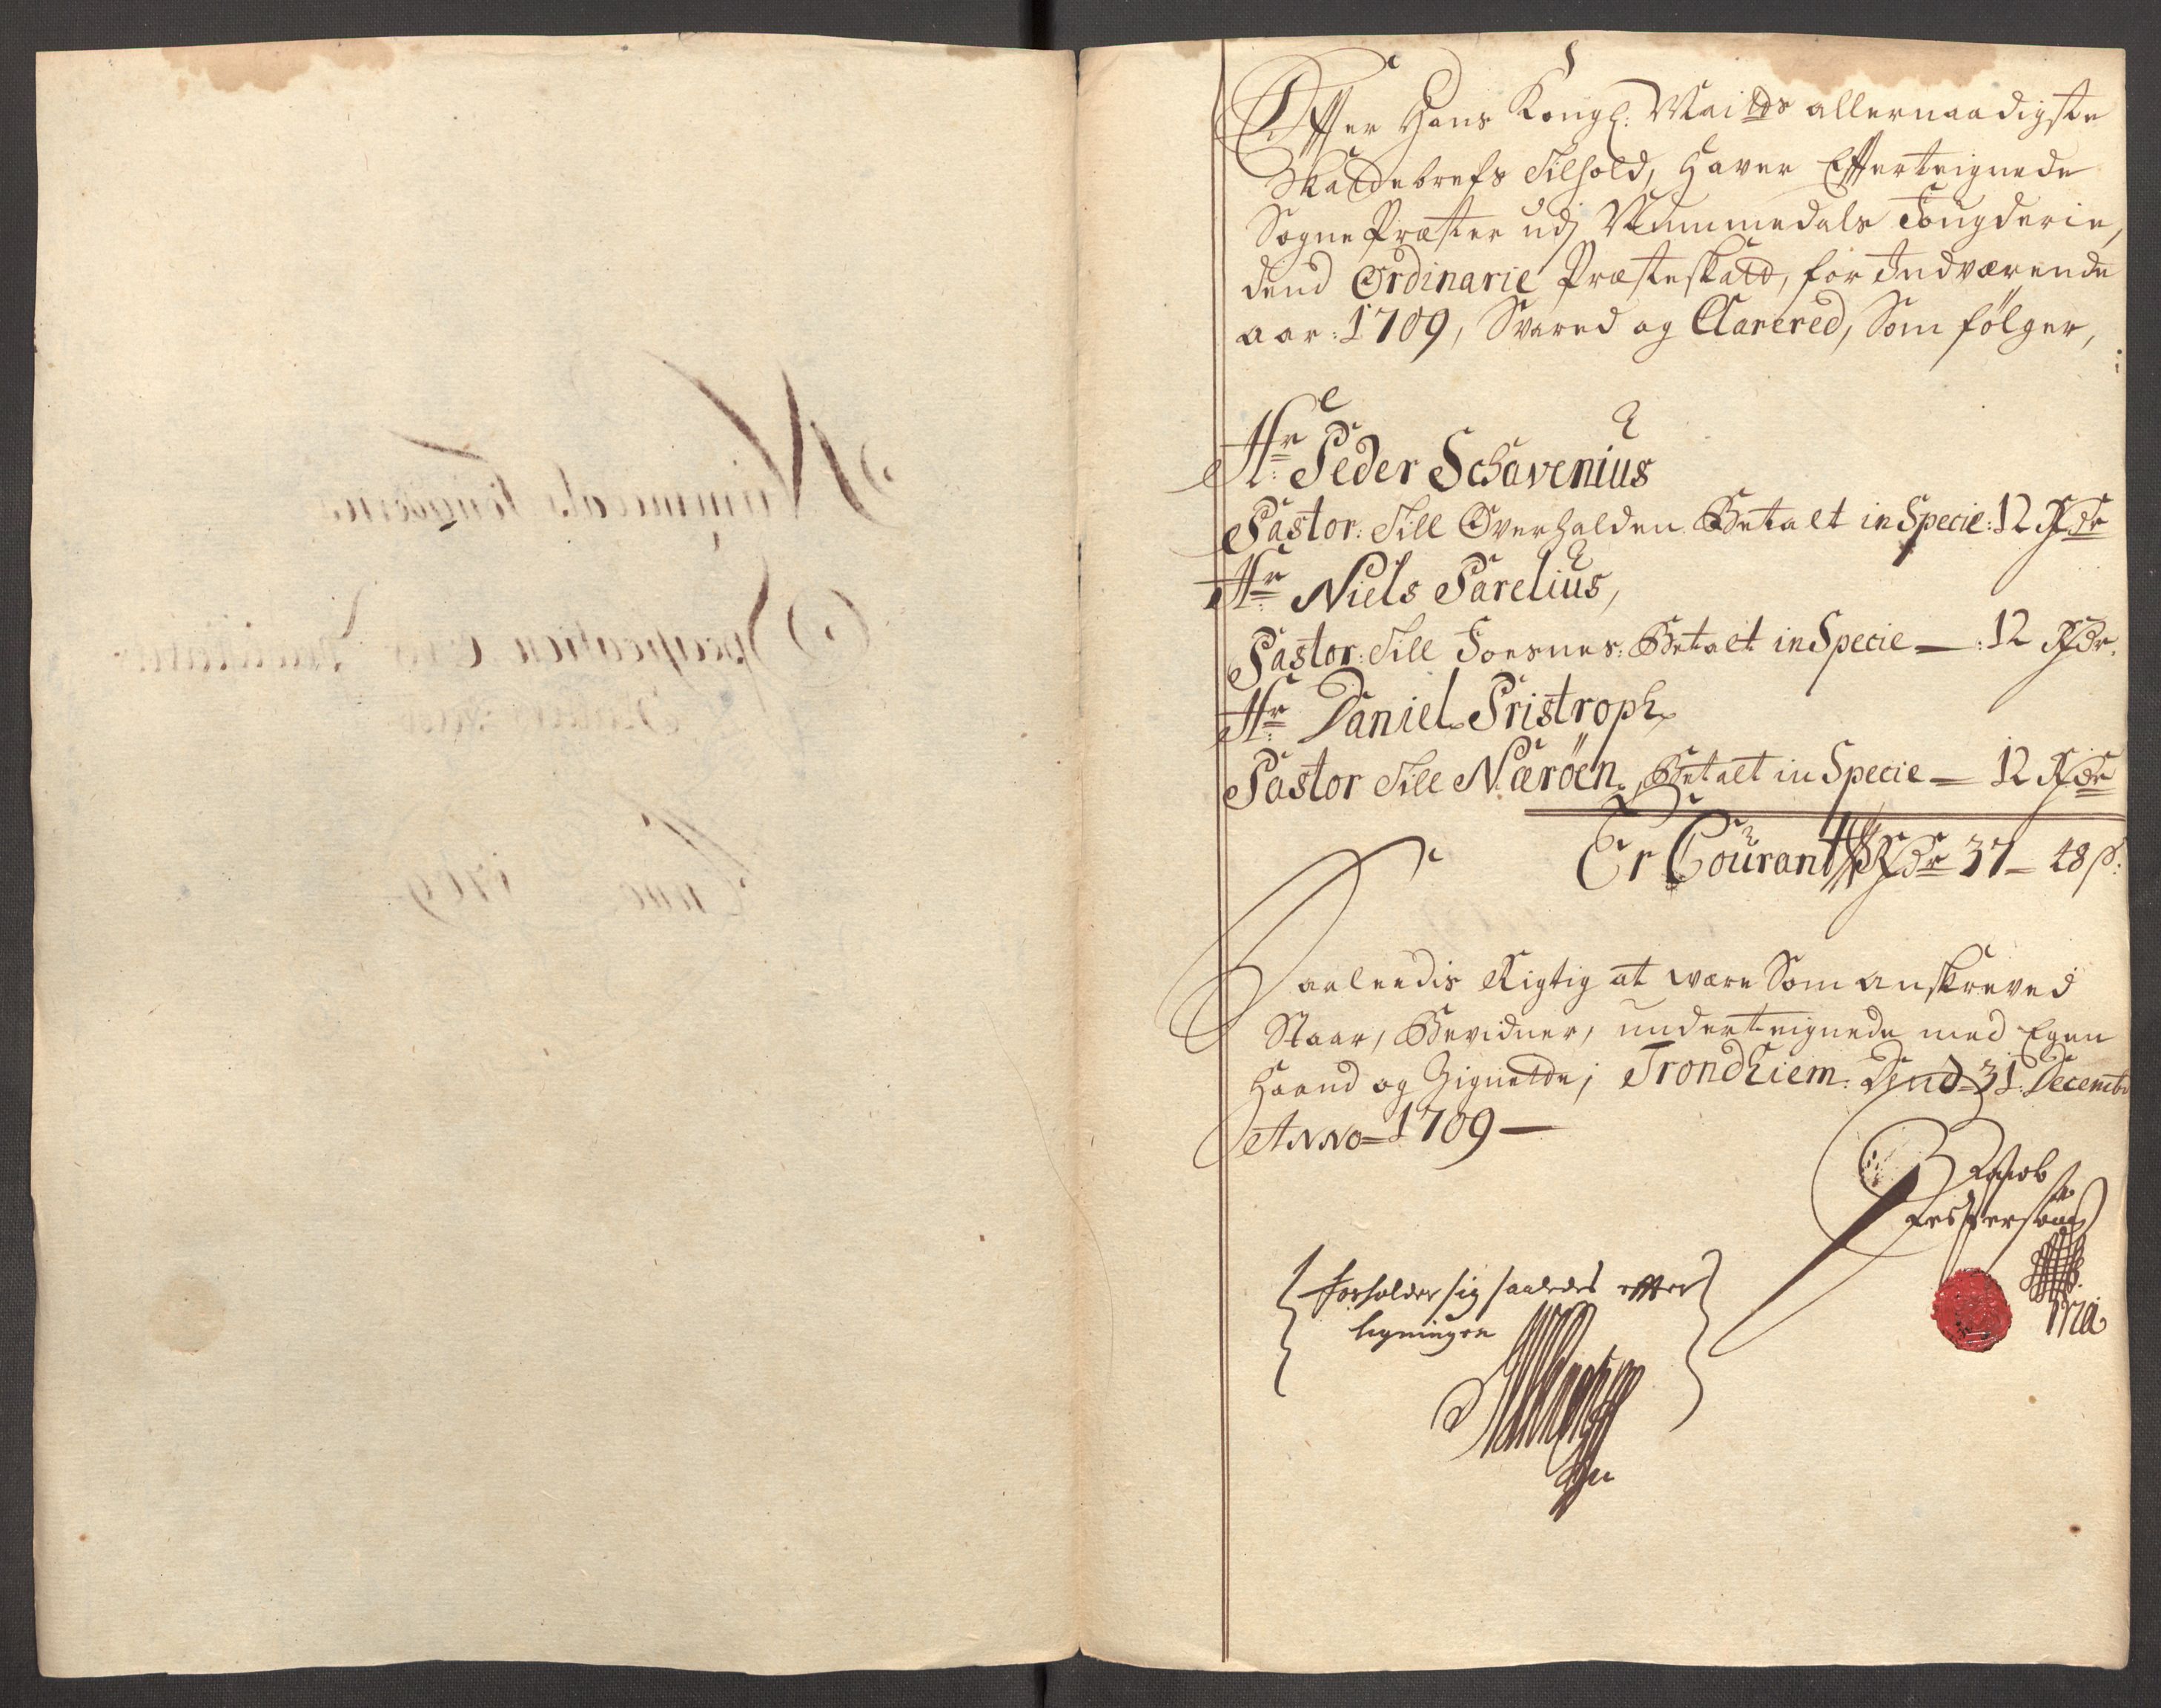 Effter Hans Kongl: Maitds allernaadigste
Skattebrefs Tilhold, Haver Efferteignede
Sogne Præster udj Nummedals Fougderie,
dend Ordinarie Præsteskatt, for Indværende
aar: 1709, Svared og Clarered, Som fölger,
Hr: Peder Schavenius
Pastor: Till Overhalden Betalt in Specie: 12 Rdr
Hr: Niels Parelius,
Pastor: Till Foesnes: Betalt in Specie — : 12 Rdr.
Hr: Daniel Pristroph
Pastor Till Næröen, Betalt in Specie — 12 Rdr
Er Courant Rdr 37 — 48 ß:
Saaleedis Rigtig at være Som anskreved
Staar, Bevidner, underteignede med Egen
Haand og Zignette, Trondhiem. Dend 31. Decembr
Anno 1709 —
Jesperson
forholder sig saaledes effter
ligningen